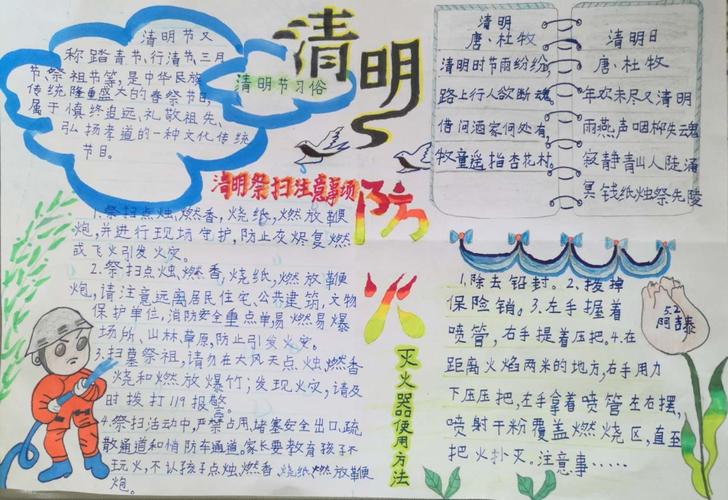 清明
清明节又
称踏青节,行清节,三月
节,祭祖节等,是中华民族
传统隆重盛大的春祭节日,
属于慎终追远、礼敬祖先、
弘扬孝道的一种文化传统
节目。
清明节习俗
清明
唐、杜牧
清明时节雨纷纷,
路上行人欲断魂。
借问酒家何处有,
牧童遥指杏花村。
清明日
唐、杜牧
年欢未尽又清明
雨燕声咽柳失魂
寂静青山人陡涌
冥钱纸烛祭先陵
清明祭扫注意事项
1.祭扫点烛,燃香,烧纸,燃放鞭
炮,并进行现场守护,防止灰烬复燃
或飞火引发火灾。
2.祭扫点烛,燃香,烧纸,燃放鞭
炮,请注意远离居民住宅,公共建筑,文物
保护单位,消防安全重点单易燃易爆
场所、山林,草原,防止引发火灾。
3.扫墓祭祖,请勿在大风天点烛,燃香
烧和燃放爆竹;发现火灾,请及
时拨打119报警。
4.祭扫活动中,严禁占用,堵塞安全出口、疏
散通道和消防车通道。家长要教育孩子不
玩火,不认孩子点烛,燃香、烧纸、燃放鞭
炮。
防
火
灭火器使用方法
1.除去铅封。2.拨掉
保险销。3.左手握着
喷管,右手提着压把。4.在
距离火焰两米的地方,右手用力
下压压把,左手拿着喷管左右摆,
喷射干粉覆盖燃烧区,直至
把火扑灭。注意事……
5.2
阿吉泰